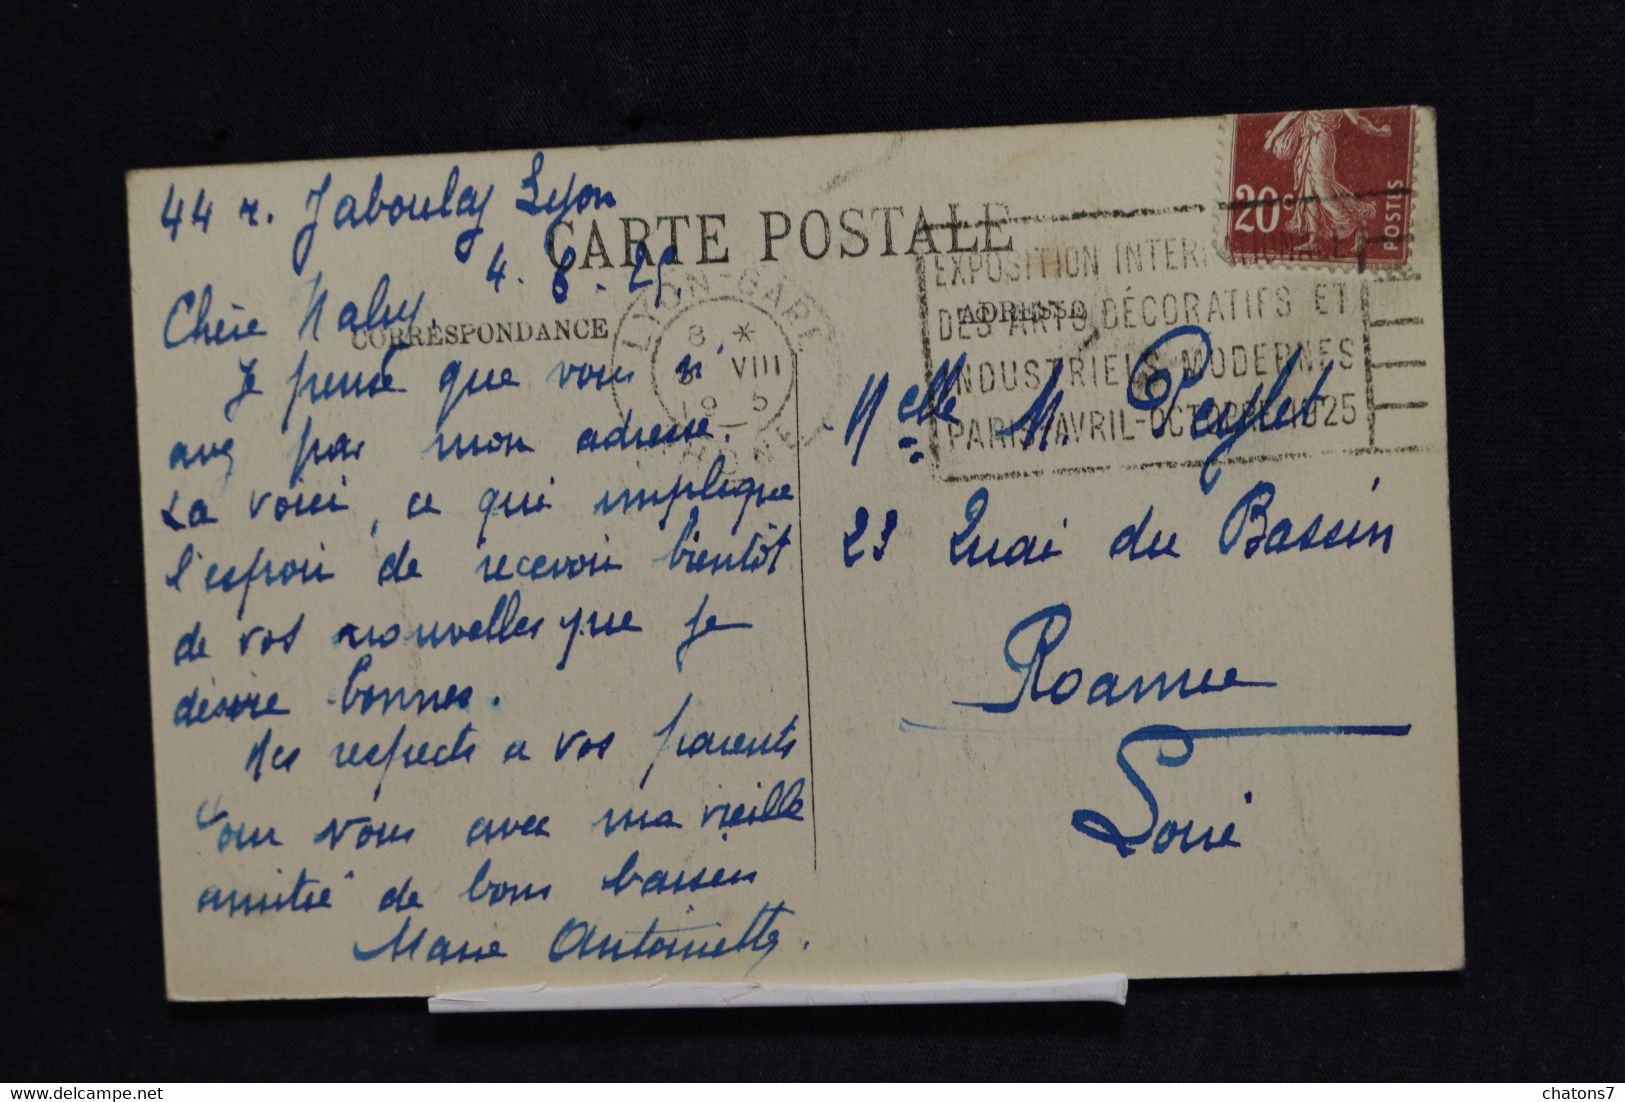 44 r. Jaboulay Lyon
4. 8. 25.
CARTE POSTALE
CORRESPONDANCE
ADRESSE
Chère Naly,
Je pense que vous n'
avez pas mon adresse.
La voici, ce qui implique
l'espoir de recevoir bientôt
de vos nouvelles que je
désire bonnes.
Mes respects à vos parents
Pour vous avec ma vieille
amitié de bons baisers
Marie Antoinette.
20c
POSTES
LYON-GARE
8 *
VIII
19 5
RHONE
EXPOSITION INTERNATIONALE
DES ARTS DÉCORATIFS ET
INDUSTRIELS MODERNES
PARIS AVRIL-OCTOBRE 1925
Melle M. Peylet
23 Quai du Bassin
Roanne
Loire
delcampe.net
chatons7